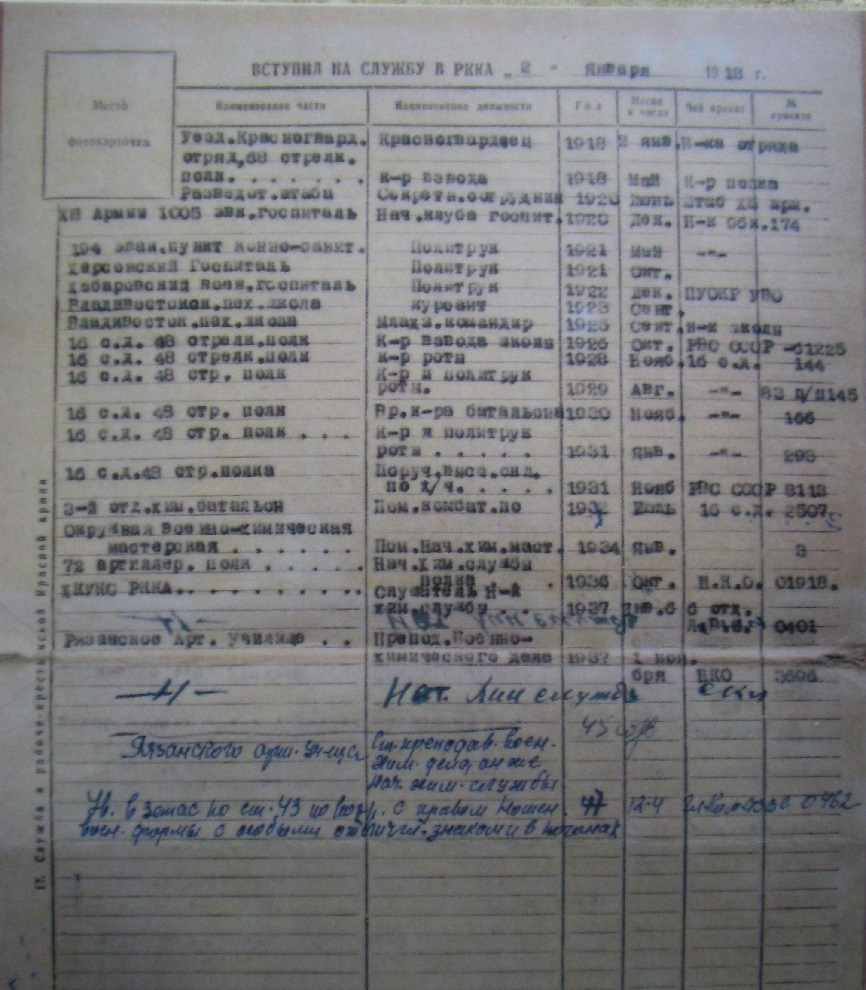 ВСТУПИЛ НА СЛУЖБУ В РККА „ 2 " января 1918 г.
Место фотокарточки
Наименование части Наименование должности Год Месяц и число Чей приказ № приказа
Уезд.Красногвард. Красногвардеец 1918 2 янв. Н-ка отряда
отряд,68 стрелк.
полк. . . . . . . К-р взвода 1918 Май К-р полка
Разведот.штаба Секретн.сотрудник 1920 Июнь Штаб XII арм.
XII Армии 1005 эвк.госпиталь Нач.клуба госпит. 1920 Дек. Н-к 174
194 эвак.пункт Политрук 1921 Май -"-
Херсонский Госпиталь Политрук 1921 Окт.
Хабаровский Воен.госпиталь Политрук 1922 Дек. ПУОКР УВО
Владивостокск.пех.школа курсант 1923 Сент.
Владивосток.пех.школа Младш.командир 1925 Сент. Н-к школы
16 с.д. 48 стрелк.полк К-р взвода школы 1926 Окт. РВС СССР -61225
16 с.д. 48 стрелк.полк К-р роты 1928 Нояб. 16 с.д. 144
16 с.д. 48 стр. полк К-р и политрук
роты. 1929 Авг. -"- 83 П/П145
16 с.д. 48 стр. полк Вр.к-ра батальона 1930 Нояб. -"- 166
16 с.д. 48 стр. полк . . . К-р и политрук
роты . . . . . 1931 Янв. -"- 293
16 с.д.48 стр.полка Поруч.
по х/ч. . . . . 1931 Нояб РВС СССР 8113
3-й отд.хим.батальон Пом.комбат.по 1932 Июль 16 с.д. 2507.
Окружная Военно-химическая
мастерская . . . . . . Пом.Нач.хим.маст. 1934 Янв. 3
72 артиллер. полк . . . . . Нач.хим.службы
полка . . 1936 Окт. Н.К.О. 01918.
ХКУКС РККА. . . . . . . . . . Слушатель Н-к
хим.службы . . 1937 6 отд.
0401
Рязанское Арт. Училище . . Препод.Военно-
химического дела 1937 1 ноя-
бря НКО 3696
—"— Нач. Хим службы
Рязанского арт. уч-ща Ст. преподав. воен.
хим. дела, он же
нач. хим. службы
Ув. в запас по ст. 43 с правом ношен. 47 12-4 0462
воен. формы с особыми отличит. знаками в погонах
12. Служба в рабоче-крестьянской Красной армии